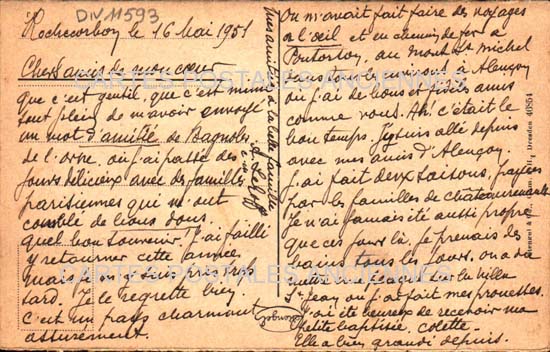 DIV 11593
Rochecorbon le 16 Mai 1951
Chers amis de mon cœur
que c'est gentil, que c'est mimi
tout plein de m'avoir envoyé
un mot d'amitié, de Bagnoles
de l'orne, où j'ai passé des
jours délicieux avec des familles
parisiennes qui m'ont
comblé de bons
quel bon souvenir! J'ai failli
y retourner cette année,
mais trop
tard. Je le regrette bien,
c'est un pays charmant
assurément.
Mes amitiés à la belle famille
On m'avait fait faire des voyages
à l'œil et en chemin de fer à
au mont St michel
à Alençon
où j'ai de bons amis
comme vous. Ah! c'était le
bon temps. J'y suis allé depuis
avec mes amis d'Alençon.
J'ai fait deux saisons, payées
par les familles de
Je n'ai jamais été aussi propre
que ces jours là. Je prenais des
bains tous les jours. On a dû
mettre une plaque sur la villa
St Jean où j'ai fait mes prouesses.
J'ai été heureux de recevoir ma
petite baptisée. Colette.
Elle a bien grandi depuis.
Dresden 40854
CARTES POSTALES ANCIENNES
CARTES POSTALES ANCIENNES